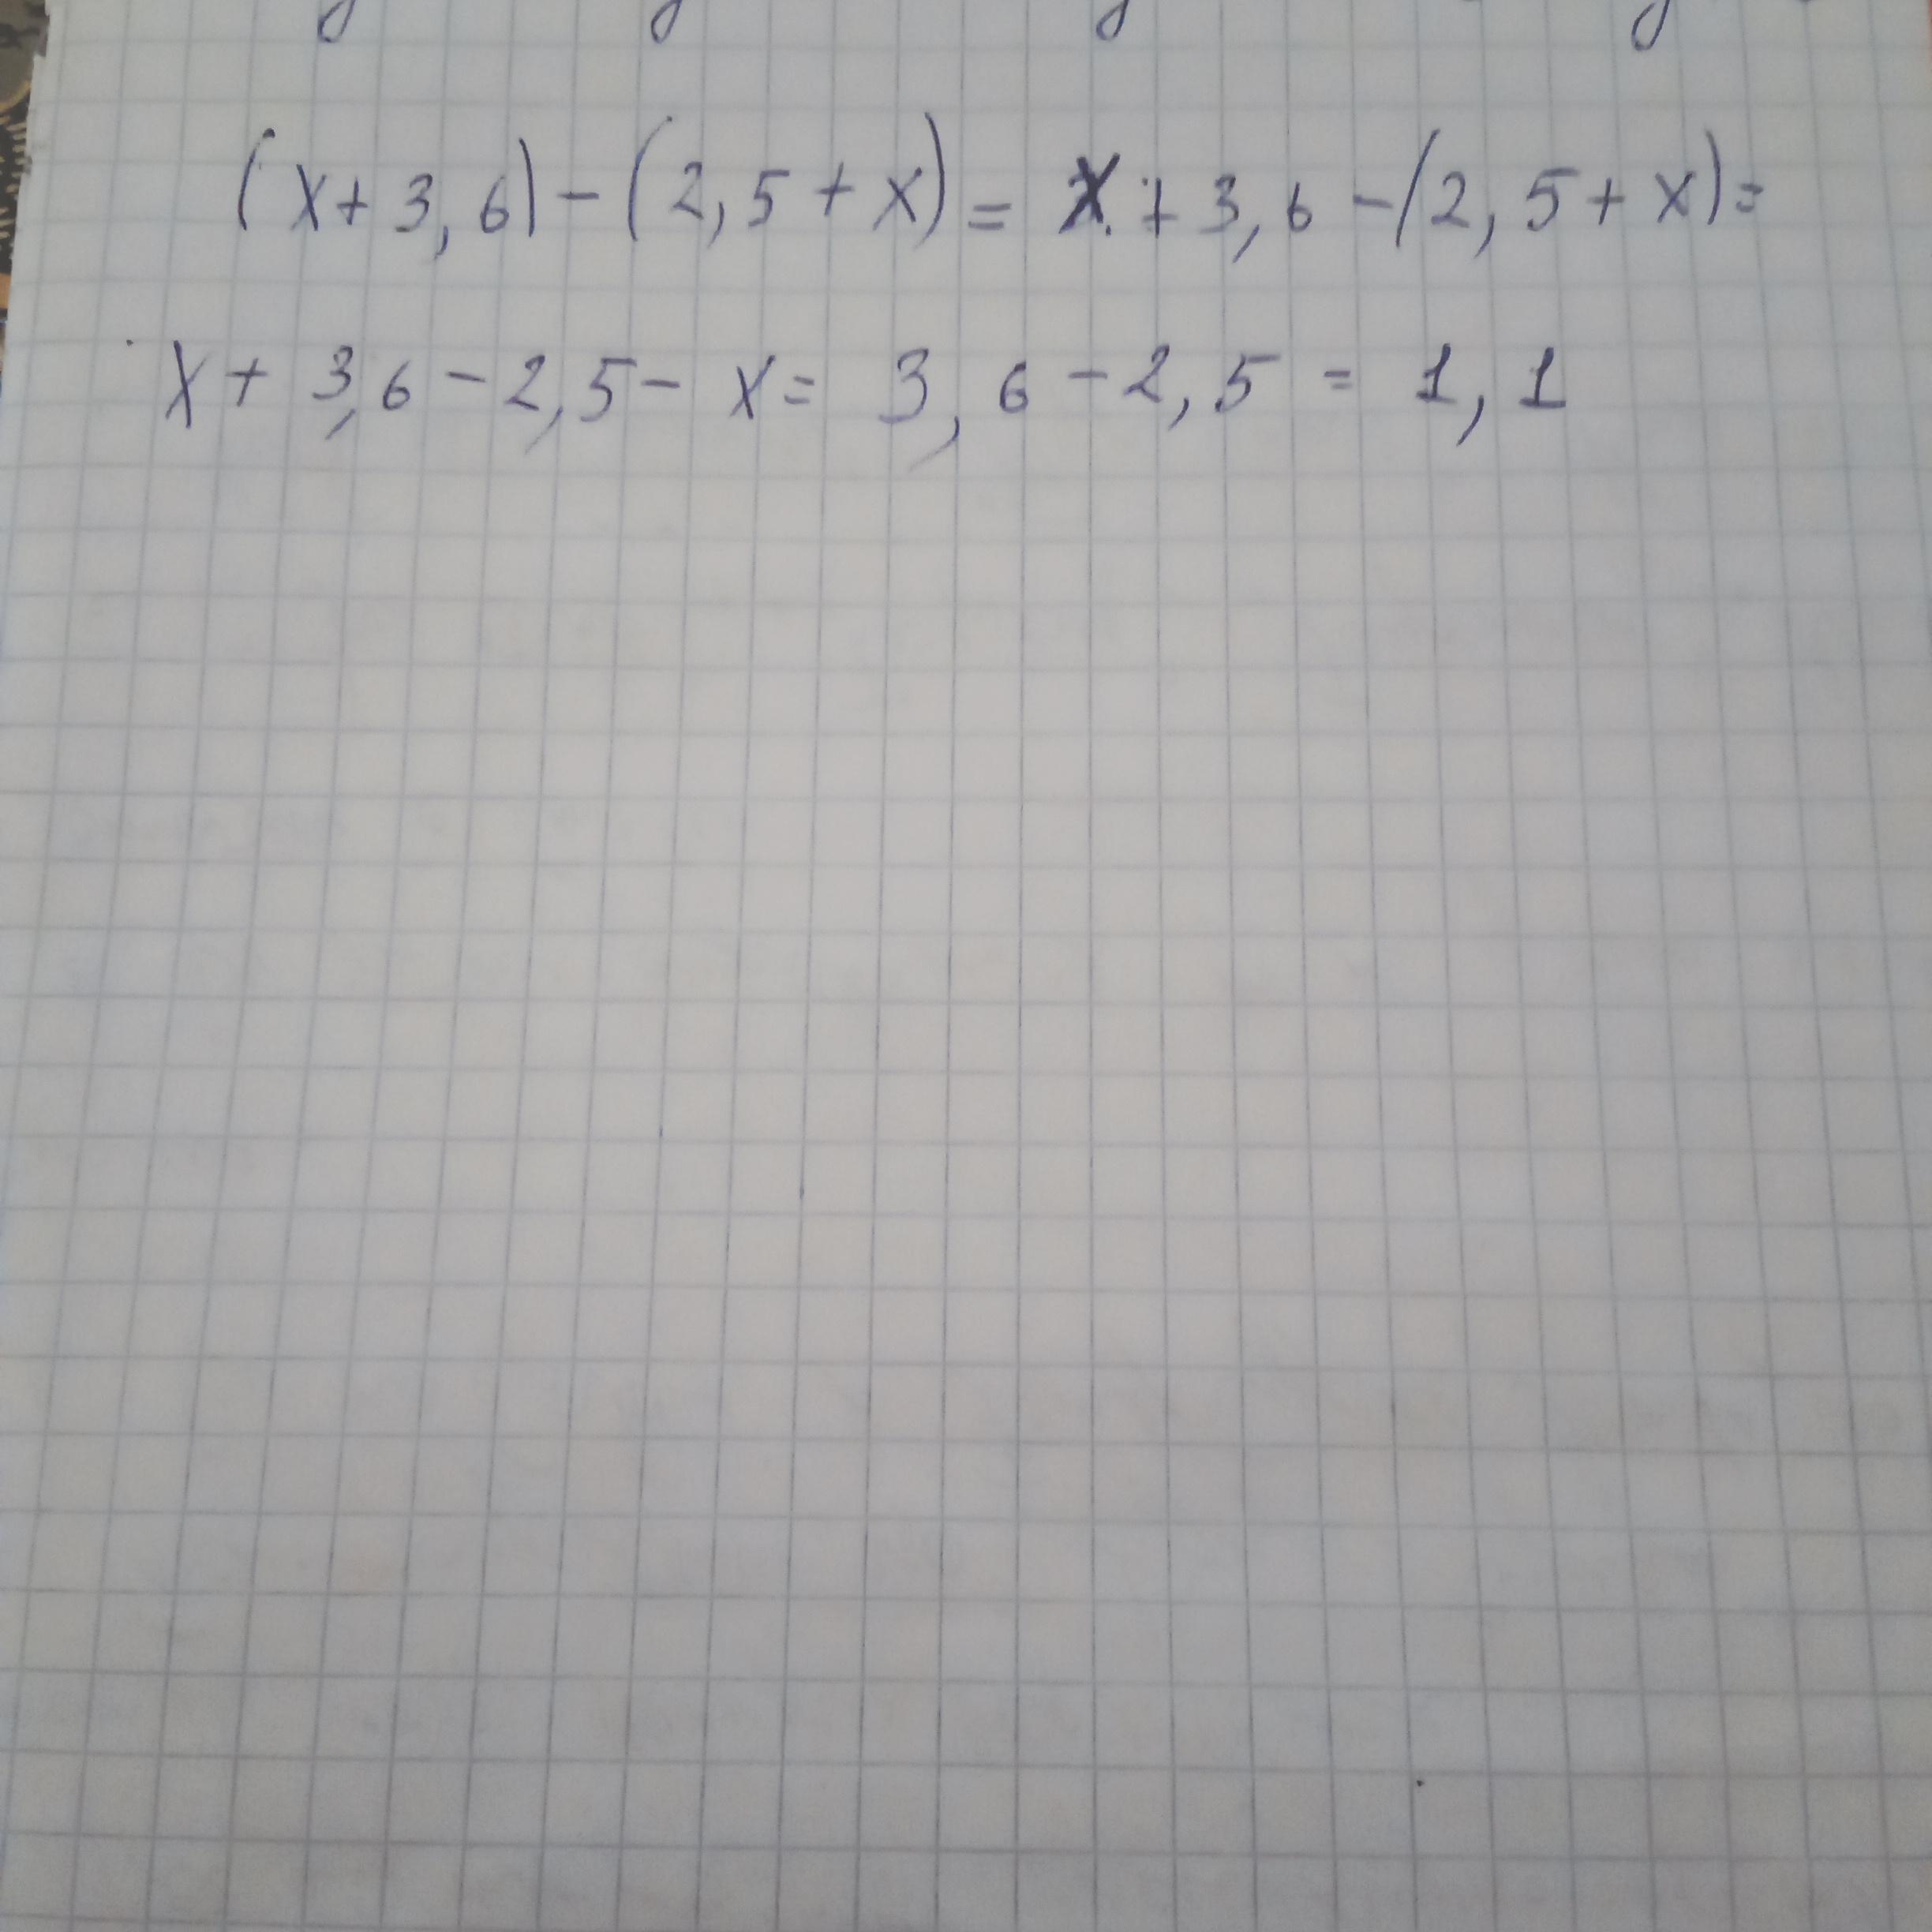 (x+3,6)-(2,5+x)= x+3,6-(2,5+x)=
x+3,6-2,5-x=3,6-2,5=1,1